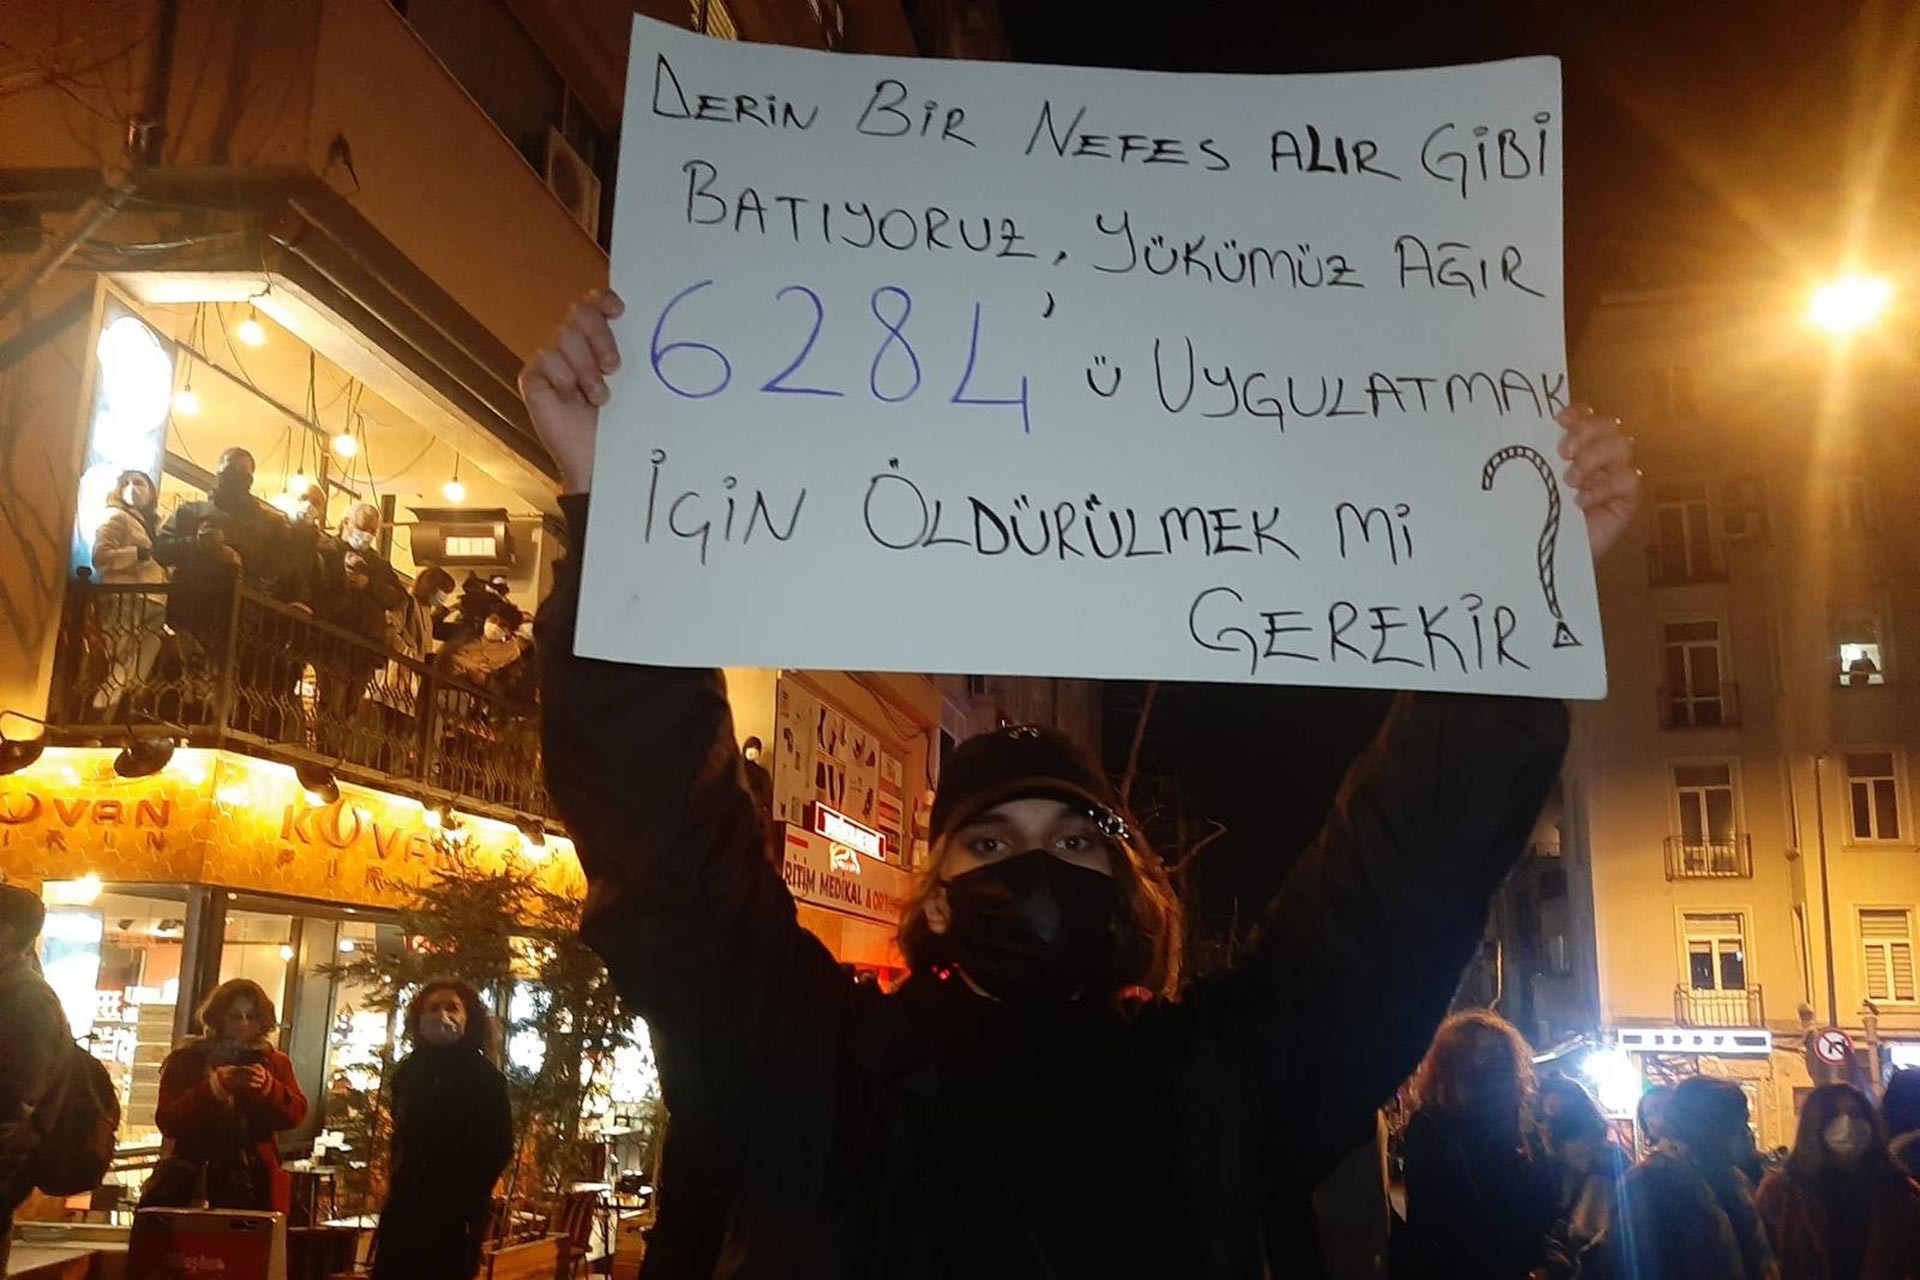 DERİN BİR NEFES ALIR GİBİ
BATIYORUZ, YÜKÜMÜZ AĞIR
6284'ü UYGULATMAK
İÇİN ÖLDÜRÜLMEK Mİ
GEREKİR?
KOVAN
FIRIN
RİTİM MEDİKAL & ORT